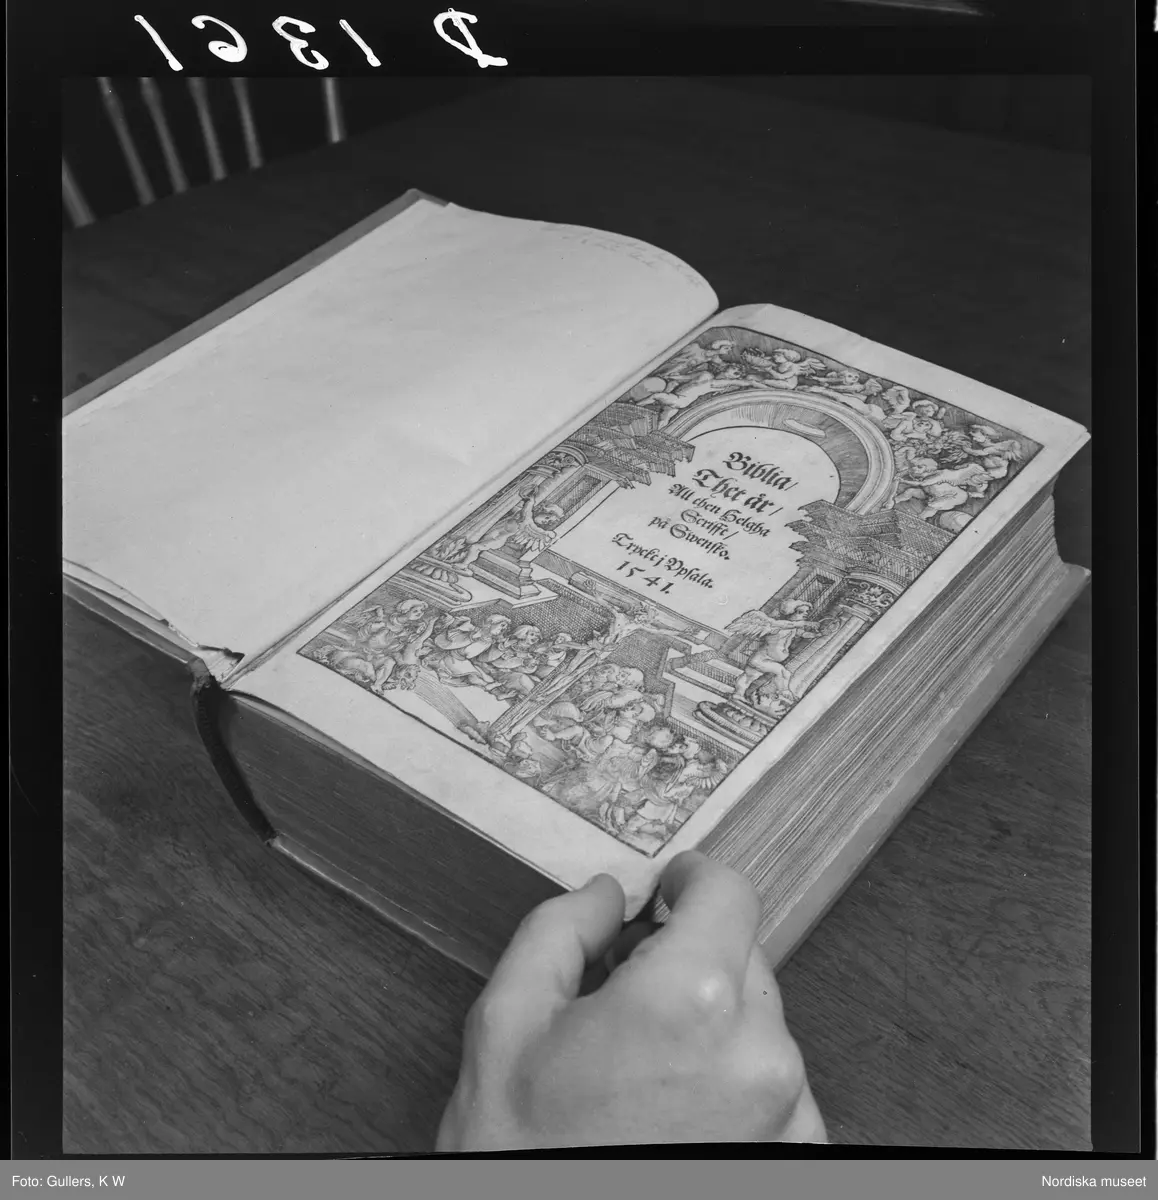 D 1361
Biblia/
Thet är/
All then Helgha
Scrifft/
på Swensko.
Tryckt j Vpsala.
1541.
Foto: Gullers, K W
Nordiska museet